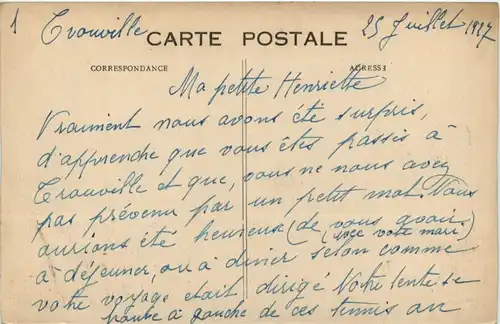 1 Trouville 25 Juillet 1927
CARTE POSTALE
CORRESPONDANCE ADRESSE
Ma petite Henriette
Vraiment nous avons été surpris,
d'apprendre que vous êtes passés à
Trouville et que, vous ne nous avez
pas prévenu par un petit mot. Nous
aurions été heureuse (de vous avoir
(avec votre mari)
à déjeuner, ou à diner selon comme
votre voyage etait dirigé Notre tente se
trouve à gauche de ces tennis au